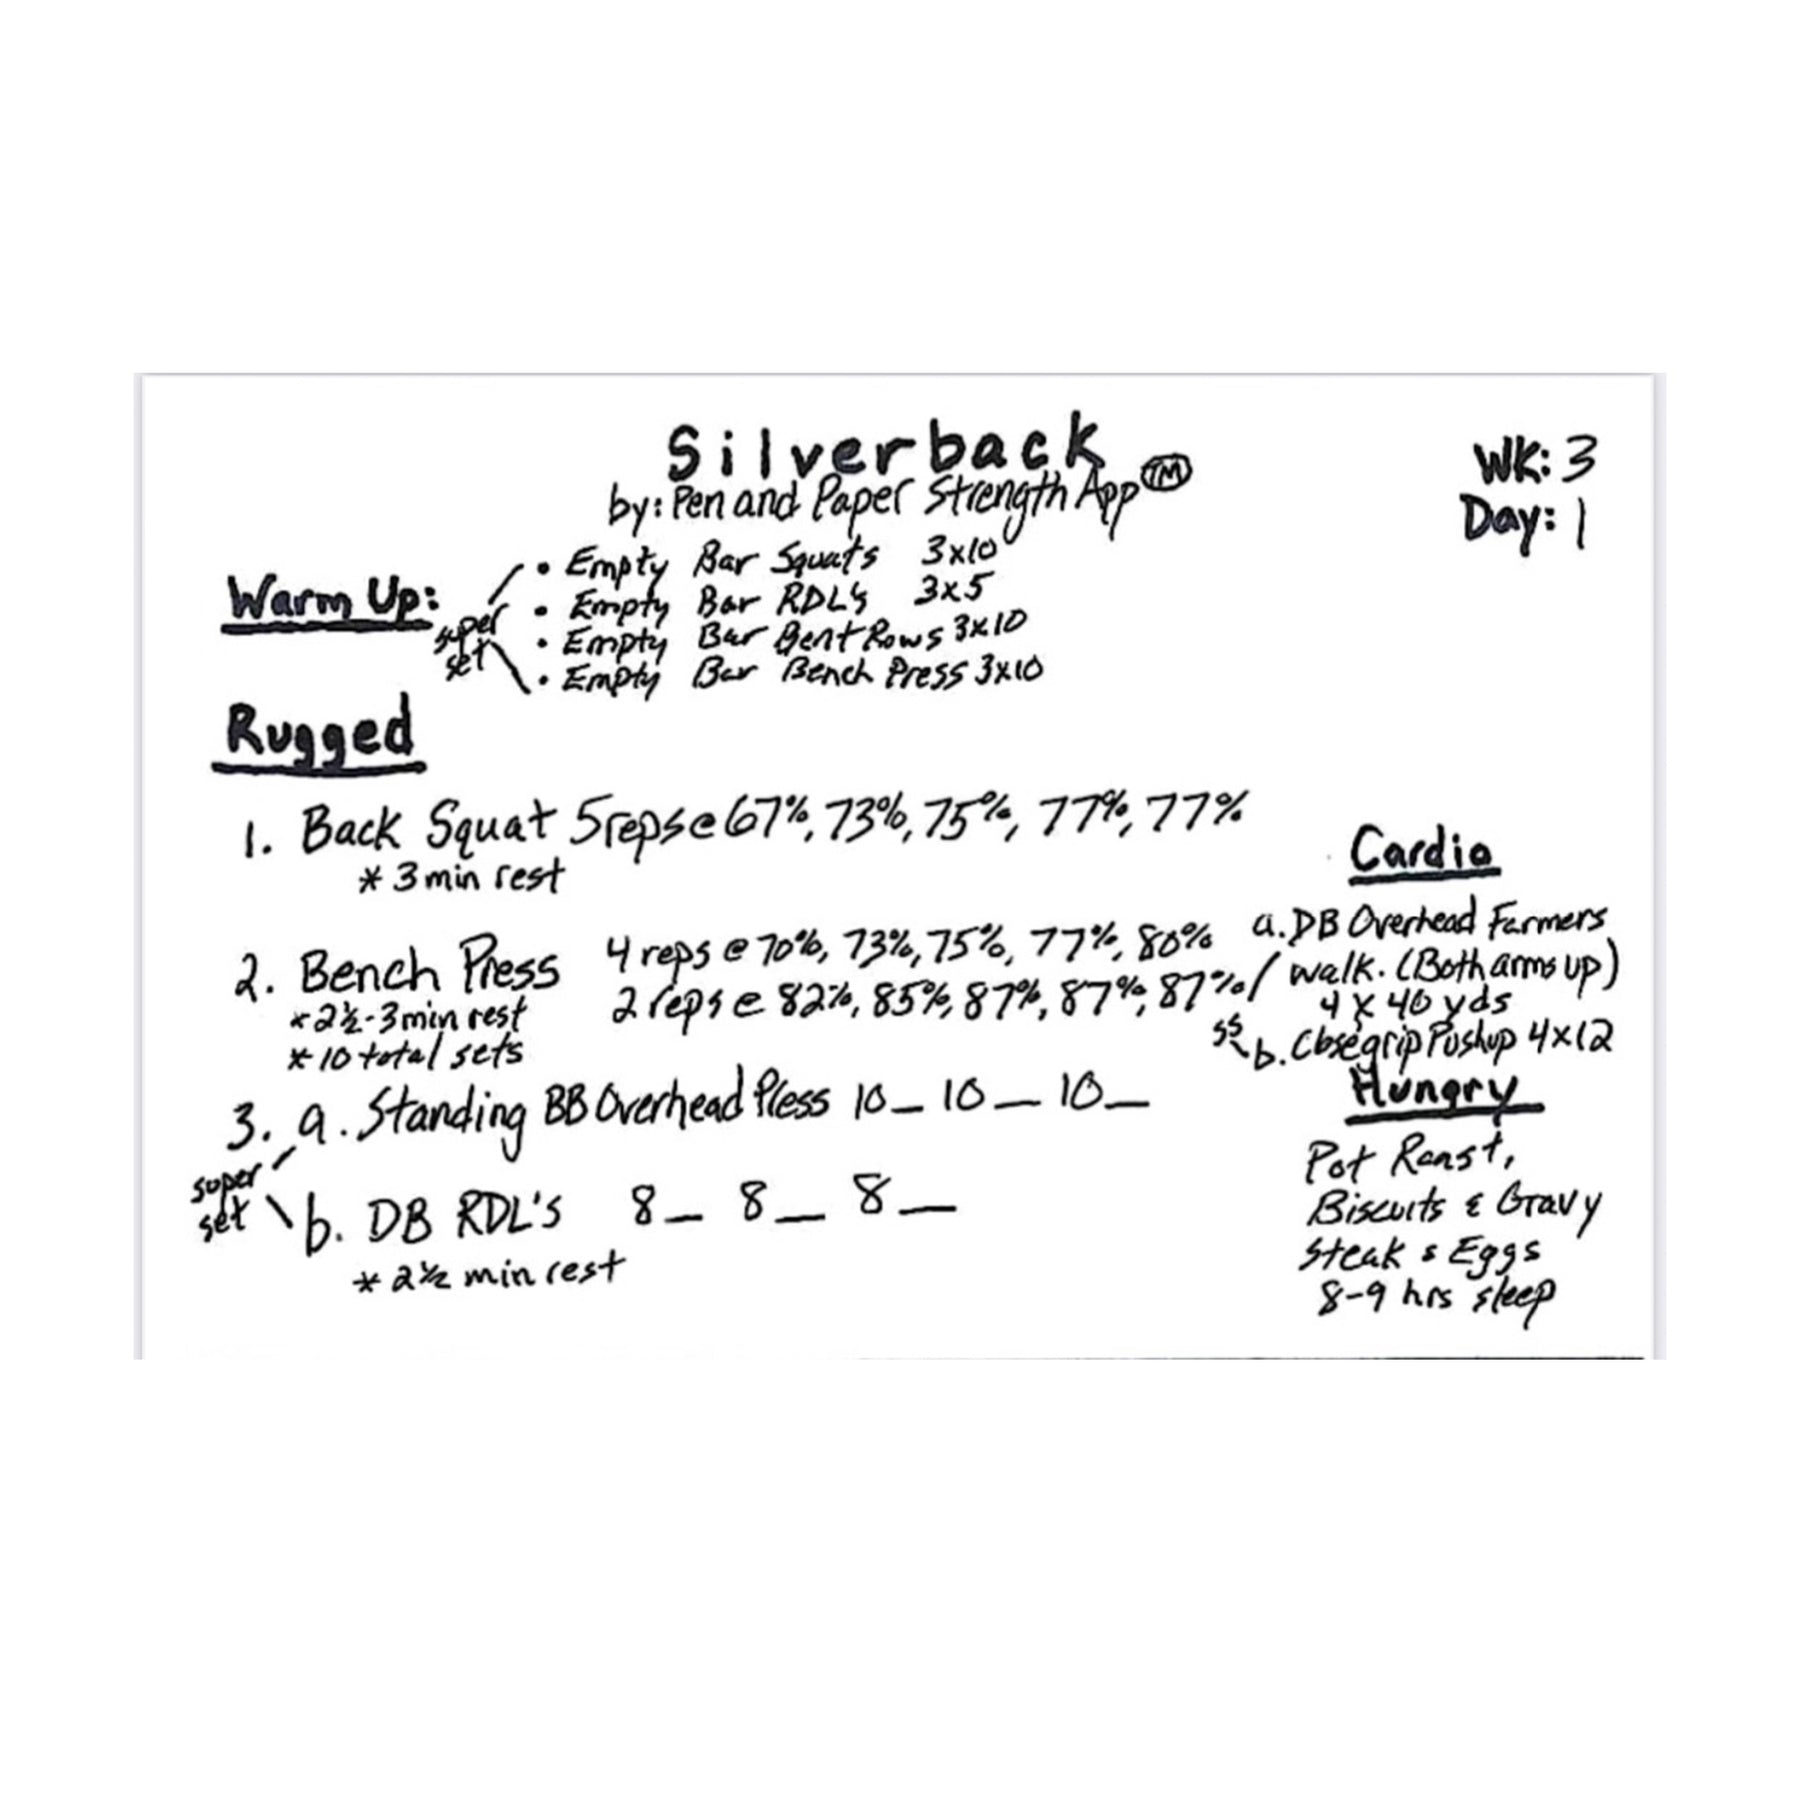 Silverback
by: Pen and Paper Strength App TM
WK: 3
Day: 1
Warm Up:
super
set
• Empty Bar Squats 3x10
• Empty Bar RDL's 3x5
• Empty Bar Bent Rows 3x10
• Empty Bar Bench Press 3x10
Rugged
1. Back Squat 5 reps @ 67%, 73%, 75%, 77%, 77%
* 3 min rest
2. Bench Press 4 reps @ 70%, 73%, 75%, 77%, 80%
2 reps @ 82%, 85%, 87%, 87%, 87%
* 2½-3 min rest
* 10 total sets
3. a. Standing BB Overhead Press 10_ 10_ 10_
super
set
b. DB RDL's 8_ 8_ 8_
* 2½ min rest
Cardio
a. DB Overhead Farmers
walk. (Both arms up)
4 x 40 yds
ss
b. Closegrip Pushup 4x12
Hungry
Pot Roast,
Biscuits & Gravy
Steak & Eggs
8-9 hrs sleep